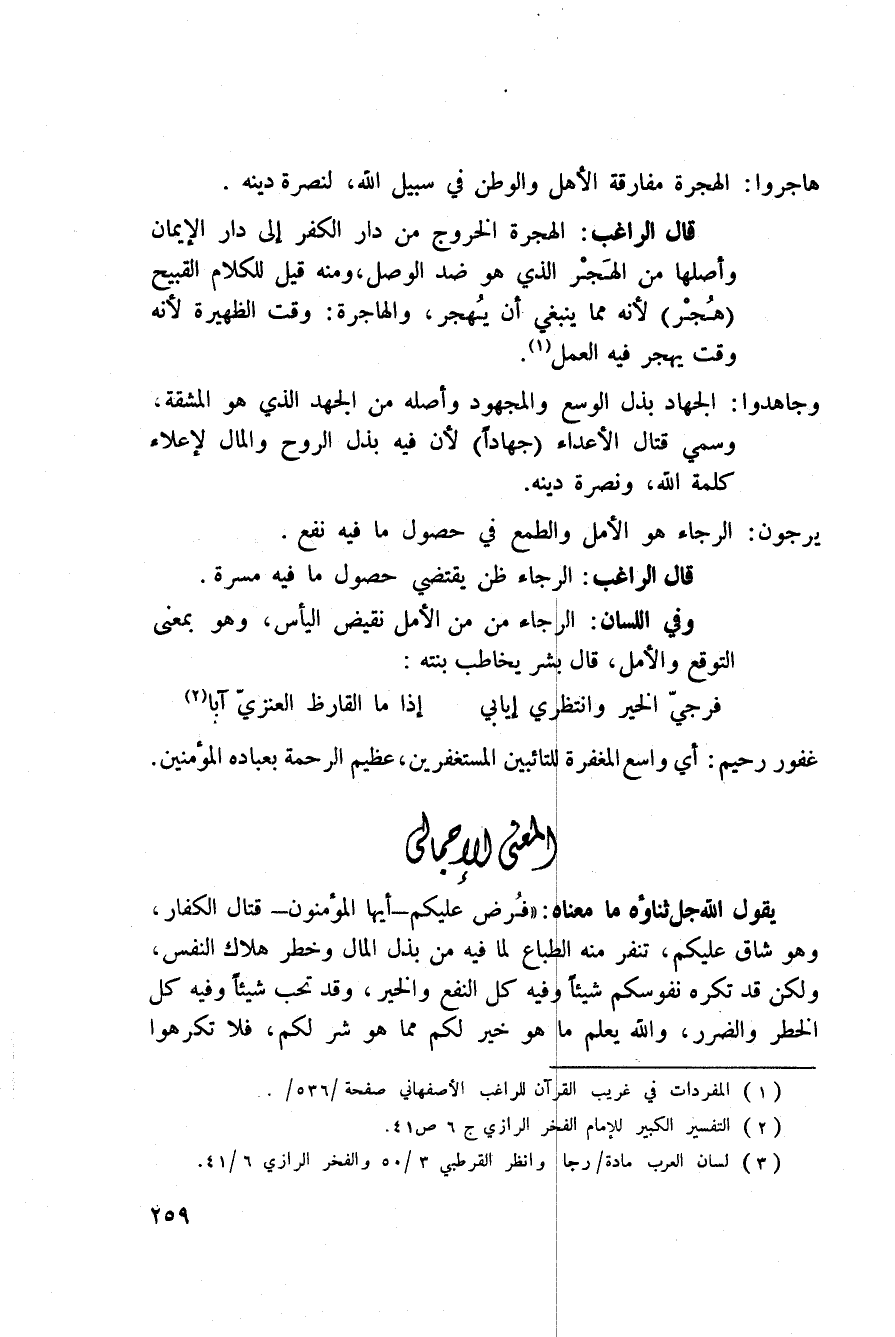 هاجروا: الهجرة مفارقة الأهل والوطن في سبيل الله، لنصرة دينه .
قال الراغب: الهجرة الخروج من دار الكفر إلى دار الإيمان
وأصلها من الهَجْر الذي هو ضد الوصل،ومنه قيل للكلام القبيح
(هُجْر) لأنه مما ينبغي أن يُهجر، والهاجرة: وقت الظهيرة لأنه
وقت يهجر فيه العمل(١).
وجاهدوا: الجهاد بذل الوسع والمجهود وأصله من الجهد الذي هو المشقة،
وسمي قتال الأعداء (جهاداً) لأن فيه بذل الروح والمال لإعلاء
كلمة الله، ونصرة دينه.
يرجون: الرجاء هو الأمل والطمع في حصول ما فيه نفع .
قال الراغب: الرجاء ظن يقتضي حصول ما فيه مسرة .
وفي اللسان: الرجاء من من الأمل نقيض اليأس، وهو بمعنى
التوقع والأمل، قال بشر يخاطب بنته :
فرجيّ الخير وانتظري إيابي إذا ما القارظ العنزيّ آبا(٢)
غفور رحيم: أي واسع المغفرة للتائبين المستغفرين،عظيم الرحمة بعباده المؤمنين.
المعنى الإجمالى
يقول الله جل ثناؤه ما معناه: «فُرض عليكم–أيها المؤمنون– قتال الكفار،
وهو شاق عليكم، تنفر منه الطباع لما فيه من بذل المال وخطر هلاك النفس،
ولكن قد تكره نفوسكم شيئاً وفيه كل النفع والخير، وقد تحب شيئاً وفيه كل
الخطر والضرر، والله يعلم ما هو خير لكم مما هو شر لكم، فلا تكرهوا
(١) المفردات في غريب القرآن للراغب الأصفهاني صفحة /٥٣٦/ .
(٢) التفسير الكبير للإمام الفخر الرازي ج ٦ ص٤١.
(٣) لسان العرب مادة/ رجا وانظر القرطبي ٣ /٥٠ والفخر الرازي ٦ /٤١.
٢٥٩